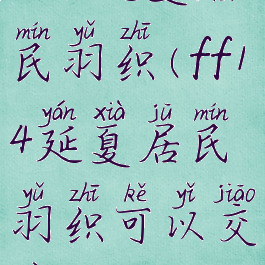 mín yǔ zhī
民羽织(ff1
yán xià jū mín
4延夏居民
yǔ zhī kě yǐ jiāo
羽织可以交